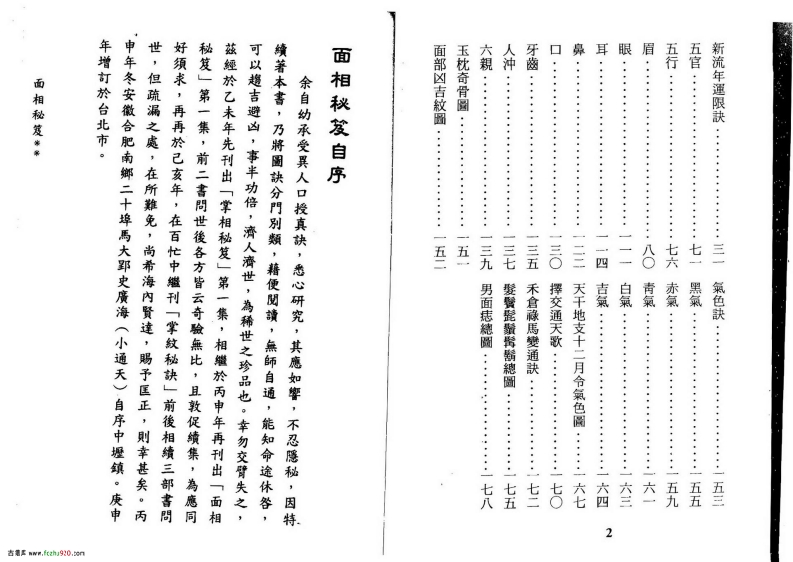 新流年運限訣……三一
五官……七一
五行……七六
眉……八〇
眼……一一一
耳……一一四
鼻……一二二
口……一三〇
牙齒……一三五
人沖……一三七
六親……一三九
玉枕奇骨圖……一五一
面部凶吉紋圖……一五二
氣色訣……一五三
黑氣……一五五
赤氣……一五九
青氣……一六一
白氣……一六三
吉氣……一六四
天干地支十二月令氣色圖……一六七
擇交通天歌……一七〇
禾倉祿馬變通訣……一七二
髮鬢髭鬚髯鬍總圖……一七五
男面痣總圖……一七八
2
面相秘笈自序
余自幼承受異人口授真訣，悉心研究，其應如響，不忍隱秘，因特
續著本書，乃將圖訣分門別類，藉便閱讀，無師自通，能知命途休咎，
可以趨吉避凶，事半功倍，濟人濟世，為稀世之珍品也。幸勿交臂失之，
茲經於乙未年先刊出「掌相秘笈」第一集，相繼於丙申年再刊出「面相
秘笈」第一集，前二書問世後各方皆云奇驗無比，且敦促續集，為應同
好須求，再再於己亥年，在百忙中繼刊「掌紋秘訣」前後相續三部書問
世，但疏漏之處，在所難免，尚希海內賢達，賜予匡正，則幸甚矣。丙
申年冬安徽合肥南鄉二十埠馬大郢史廣海（小通天）自序中壢鎮。庚申
年增訂於台北市。
面相秘笈**
古籍库 www.fczhu920.com